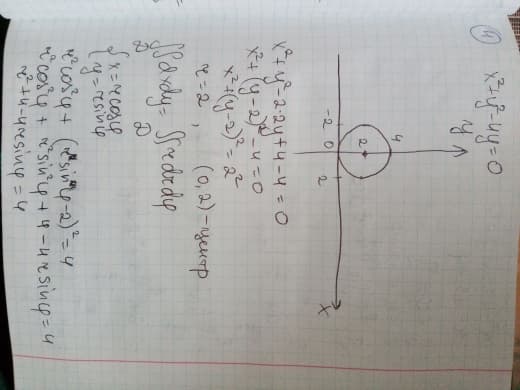 4 x²+y²-4y=0
y
4
2
-2 0 2 x
x²+y²-2·2y+4-4=0
x²+(y-2)²-4=0
x²+(y-2)²=2²
r=2, (0,2)-центр
∬dxdy=∬rdrdφ
D D
{x=rcosφ
y=rsinφ
r²cos²φ+(rsinφ-2)²=4
r²cos²φ+r²sin²φ+4-4rsinφ=4
r²+4-4rsinφ=4